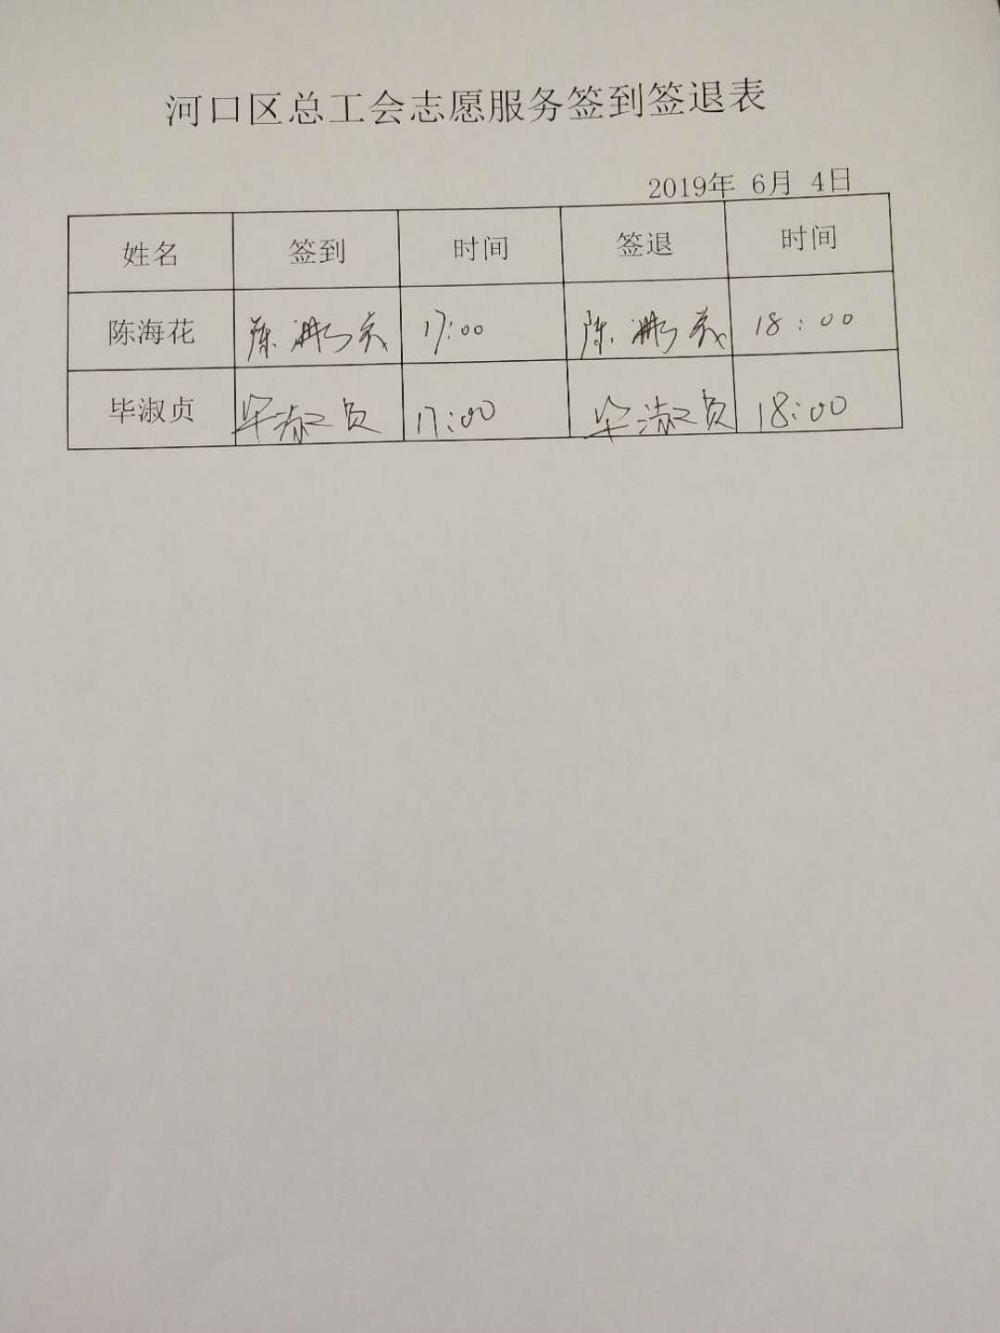 河口区总工会志愿服务签到签退表
2019年 6月 4日
姓名 签到 时间 签退 时间
陈海花 陈 17:00 陈 18:00
毕淑贞 毕淑贞 17:00 毕淑贞 18:00